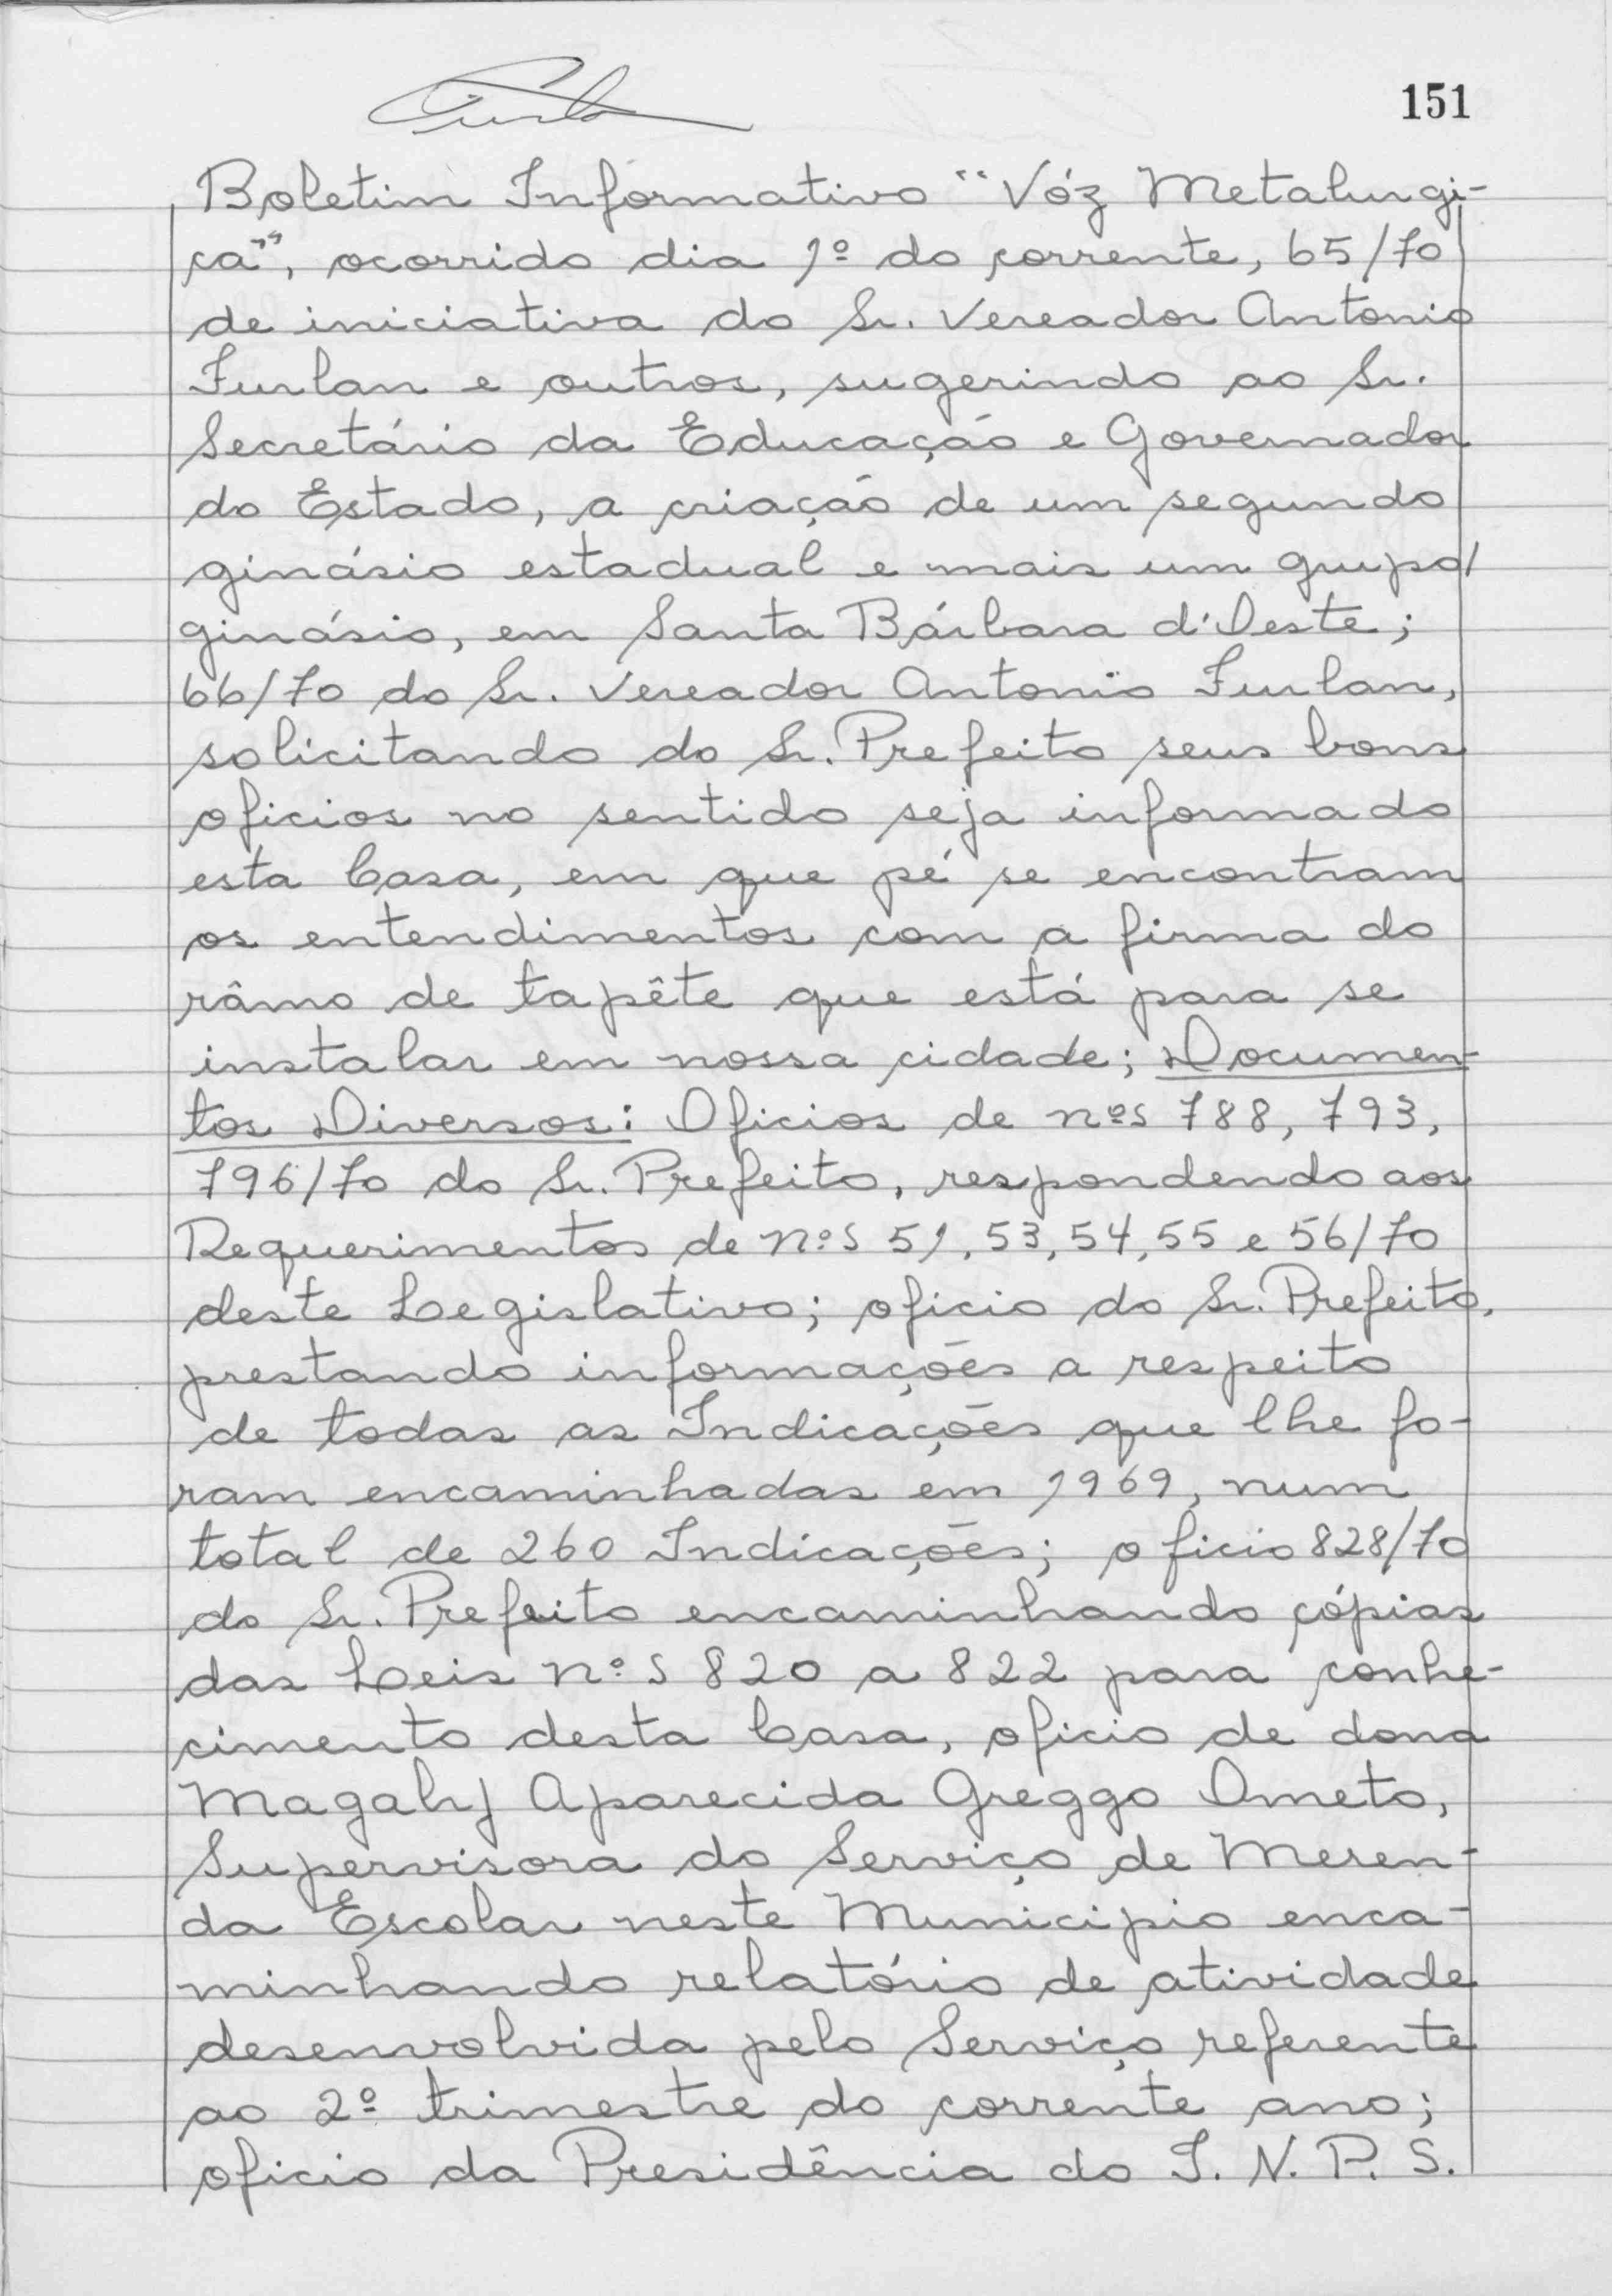 151
Boletim Informativo "Vóz Metalurgi-
ca", ocorrido dia 1º do corrente, 65/70
de iniciativa do Sr. Vereador Antonio
Furlan e outros, sugerindo ao Sr.
Secretário da Educação e Governador
do Estado, a criação de um segundo
ginásio estadual e mais um grupo/
ginásio, em Santa Bárbara d'Oeste;
66/70 do Sr. Vereador Antonio Furlan,
solicitando do Sr. Prefeito seus bons
oficios no sentido seja informado
esta Casa, em que pé se encontram
os entendimentos com a firma do
râmo de tapête que está para se
instalar em nossa cidade; Documen-
tos Diversos: Oficios de nºs 788, 793,
796/70 do Sr. Prefeito, respondendo aos
Requerimentos de nºs 51, 53, 54, 55 e 56/70
deste Legislativo; oficio do Sr. Prefeito,
prestando informações a respeito
de todas as Indicações que lhe fo-
ram encaminhadas em 1969, num
total de 260 Indicações; oficio 828/70
do Sr. Prefeito encaminhando cópias
das Leis nºs 820 a 822 para conhe-
cimento desta Casa, oficio de dona
Magaly Aparecida Greggo Ometo,
Supervisora do Serviço de Meren-
da Escolar neste Municipio enca-
minhando relatório de atividade
desenvolvida pelo Serviço referente
ao 2º trimestre do corrente ano;
oficio da Presidência do I. N. P. S.